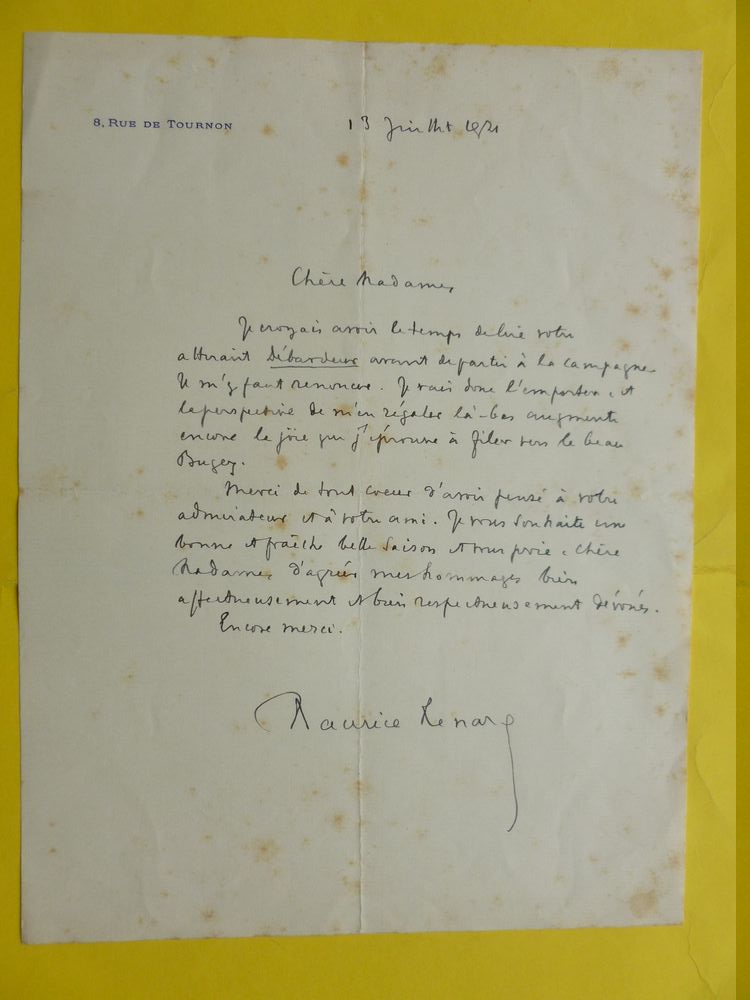 8, RUE DE TOURNON
13 Juillet 1921
Chère Madame,
Je croyais avoir le temps de lire votre
attirant Débardeur avant de partir à la campagne.
Il m'y faut renoncer. Je vais donc l'emporter, et
la perspective de m'en régaler là-bas augmente
encore la joie que j'éprouve à filer vers le beau
Bugey.
Merci de tout coeur d'avoir pensé à votre
admirateur et à votre ami. Je vous souhaite une
bonne et fraîche belle saison et vous prie, chère
Madame, d'agréer mes hommages bien
affectueusement et bien respectueusement dévoués.
Encore merci.
Maurice Renard